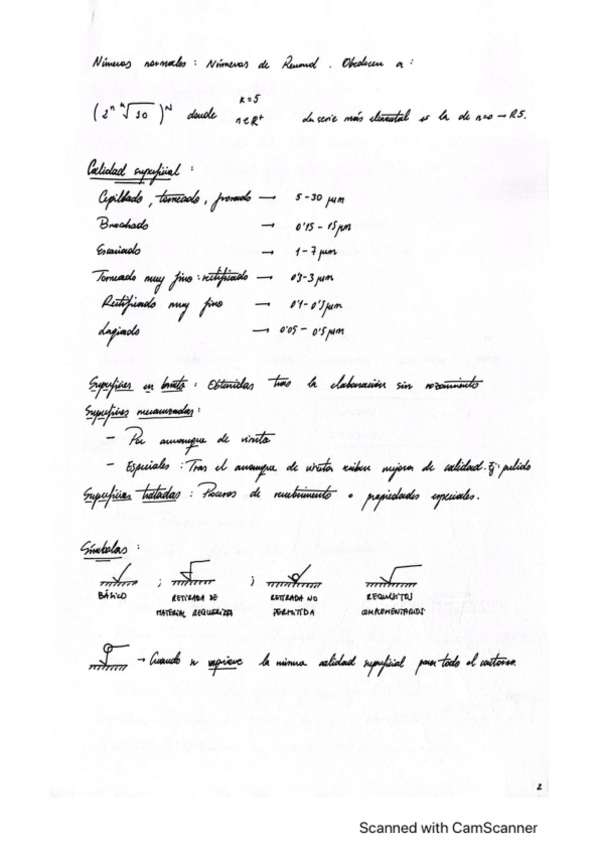 Números normales: Números de Renard. Obedecen a:
(2^n k√10)^N donde k=5 n∈R+ La serie más elemental es la de n=0 → R5.
Calidad superficial:
Cepillado, torneado, fresado → 5-30 μm
Brochado → 0'15 - 15 μm
Escariado → 1-7 μm
Torneado muy fino: rectificado → 0'3-3 μm
Rectificado muy fino → 0'1-0'3 μm
Lapeado → 0'05 - 0'5 μm
Superficies en bruto: Obtenidas tras la elaboración sin rozamiento
Superficies mecanizadas:
- Por arranque de viruta
- Especiales: Tras el arranque de viruta sufren mejora de calidad. Ej: pulido
Superficies tratadas: Procesos de recubrimiento o propiedades especiales.
Símbolos:
; ;
BÁSICO RETIRADA DE MATERIAL REQUERIDA RETIRADA NO PERMITIDA REQUISITOS COMPLEMENTARIOS
→ Cuando se requiere la misma calidad superficial para todo el contorno.
2
Scanned with CamScanner